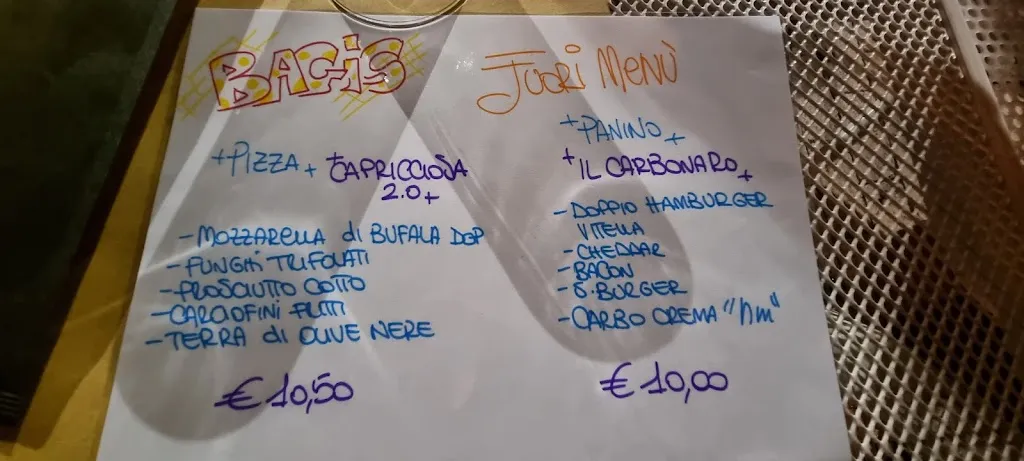 BAGiS
FUORI MENÙ
+PIZZA+ +CAPRICCIOSA
2.0+
- MOZZARELLA di BUFALA DOP
- FUNGHI TRIFOLATI
- PROSCIUTTO COTTO
- CARCIOFINI FRITTI
- TERRA di OLIVE NERE
€ 10,50
+PANINO+
+IL CARBONARO+
- DOPPIO HAMBURGER
VITELLA
- CHEDDAR
- BACON
- S. BURGER
- CARBO CREMA "hm"
€ 10,00